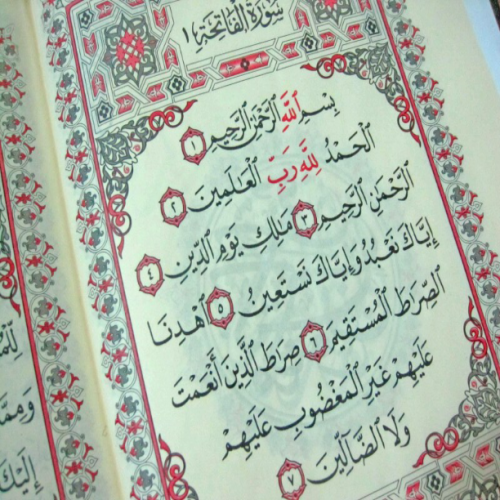 سُورَةُ الْفَاتِحَةِ ١
بِسْمِ اللَّهِ الرَّحْمَٰنِ الرَّحِيمِ ١
الْحَمْدُ لِلَّهِ رَبِّ الْعَالَمِينَ ٢
الرَّحْمَٰنِ الرَّحِيمِ ٣ مَلِكِ يَوْمِ الدِّينِ ٤
إِيَّاكَ نَعْبُدُ وَإِيَّاكَ نَسْتَعِينُ ٥ اهْدِنَا
الصِّرَاطَ الْمُسْتَقِيمَ ٦ صِرَاطَ الَّذِينَ أَنْعَمْتَ
عَلَيْهِمْ غَيْرِ الْمَغْضُوبِ عَلَيْهِمْ
وَلَا الضَّالِّينَ ٧
إِلَيْكَ